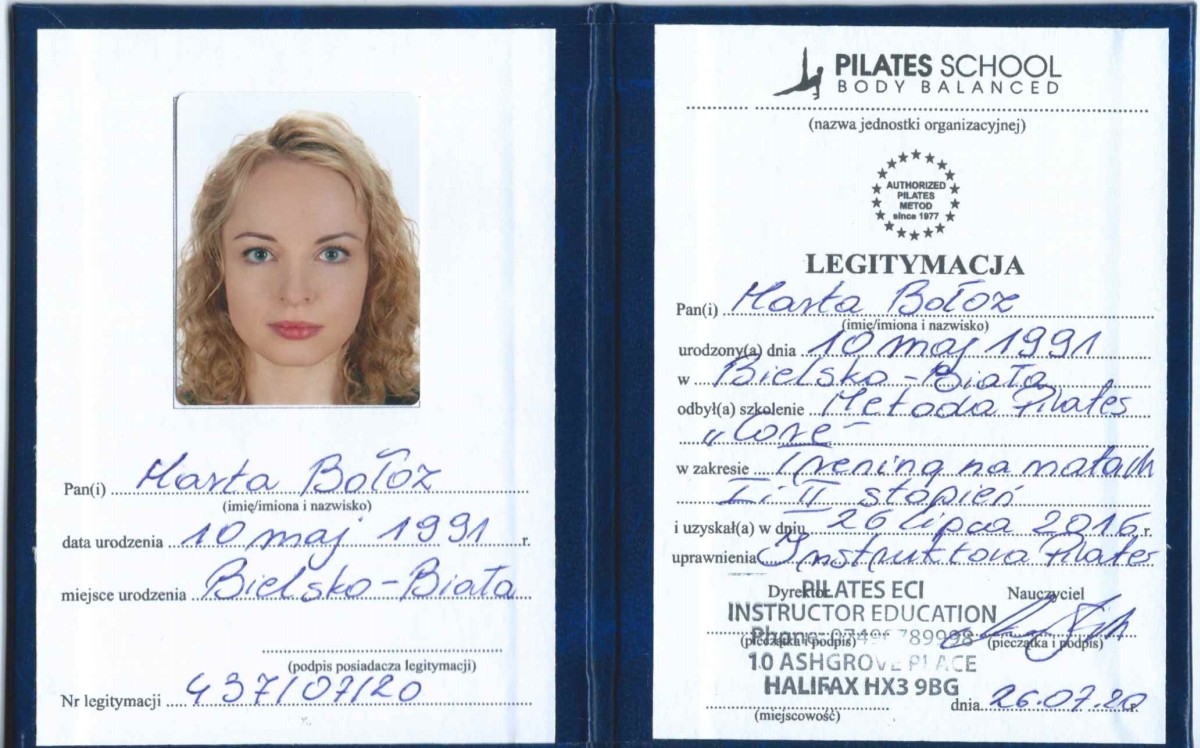 Pan(i) Marta Bołoz
(imię/imiona i nazwisko)
data urodzenia 10 maj 1991 r.
miejsce urodzenia Bielsko-Biała
(podpis posiadacza legitymacji)
Nr legitymacji 437/07/20
PILATES SCHOOL
BODY BALANCED
(nazwa jednostki organizacyjnej)
AUTHORIZED
PILATES
METOD
since 1977
LEGITYMACJA
Pan(i) Marta Bołoz
(imię/imiona i nazwisko)
urodzony(a) dnia 10 maj 1991
w Bielsko-Biała
odbył(a) szkolenie Metoda Pilates
"Core"
w zakresie Trening na matach
I i II stopień
i uzyskał(a) w dniu 26 lipca 2016 r.
uprawnienia Instruktora Pilates
Dyrektor Nauczyciel
PILATES ECI
INSTRUCTOR EDUCATION
Phone:
(pieczątka i podpis) (pieczątka i podpis)
10 ASHGROVE PLACE
HALIFAX HX3 9BG
dnia 26.07.20
(miejscowość)